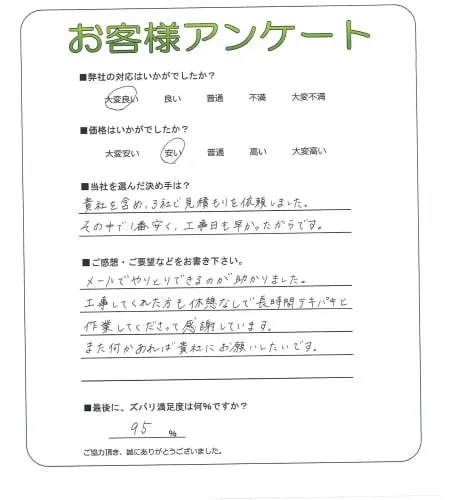 お客様アンケート
■弊社の対応はいかがでしたか?
大変良い 良い 普通 不満 大変不満
■価格はいかがでしたか?
大変安い 安い 普通 高い 大変高い
■当社を選んだ決め手は?
貴社を含め、3社で見積もりを依頼しました。
その中で1番安く、工事日も早かったからです。
■ご感想・ご要望などをお書き下さい。
メールでやりとりできるのが助かりました。
工事してくれた方も休憩なしで長時間テキパキと
作業してくださって感謝しています。
また何かあれば貴社にお願いしたいです。
■最後に、ズバリ満足度は何%ですか?
95 %
ご協力頂き、誠にありがとうございました。